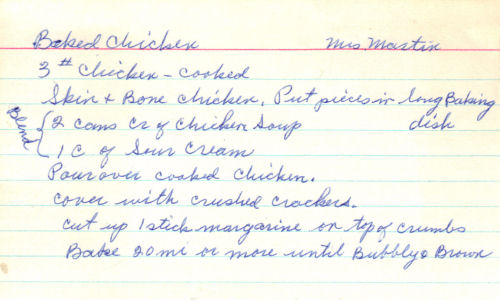 Baked Chicken Mrs. Martin
3# Chicken - cooked
Skin + Bone chicken. Put pieces in long Baking dish
Blend { 2 cans Cr of Chicken Soup
1 C of Sour Cream
Pour over cooked Chicken.
Cover with crushed crackers.
Cut up 1 stick margarine on top of crumbs
Bake 20 mi or more until Bubbly & Brown